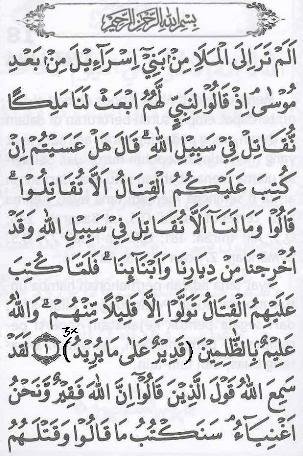 بسم الله الرحمن الرحيم
اَلَمْ تَرَ اِلَى الْمَلَاِ مِنْ بَنِيْٓ اِسْرَآءِيْلَ مِنْ بَعْدِ
مُوْسٰى اِذْ قَالُوْا لِنَبِيٍّ لَّهُمُ ابْعَثْ لَنَا مَلِكًا
نُّقَاتِلْ فِيْ سَبِيْلِ اللهِ ۗ قَالَ هَلْ عَسَيْتُمْ اِنْ
كُتِبَ عَلَيْكُمُ الْقِتَالُ اَلَّا تُقَاتِلُوْا ۗ
قَالُوْا وَمَا لَنَآ اَلَّا نُقَاتِلَ فِيْ سَبِيْلِ اللهِ وَقَدْ
اُخْرِجْنَا مِنْ دِيَارِنَا وَاَبْنَآىِٕنَا ۗ فَلَمَّا كُتِبَ
عَلَيْهِمُ الْقِتَالُ تَوَلَّوْا اِلَّا قَلِيْلًا مِّنْهُمْ ۗ وَاللهُ
عَلِيْمٌ بِالظّٰلِمِيْنَ (قَدِيْرٌ عَلٰى مَا يُرِيْدُ) 3x ١ لَقَدْ
سَمِعَ اللهُ قَوْلَ الَّذِيْنَ قَالُوْٓا اِنَّ اللهَ فَقِيْرٌ وَّنَحْنُ
اَغْنِيَآءُ ۘ سَنَكْتُبُ مَا قَالُوْا وَقَتْلَهُمُ